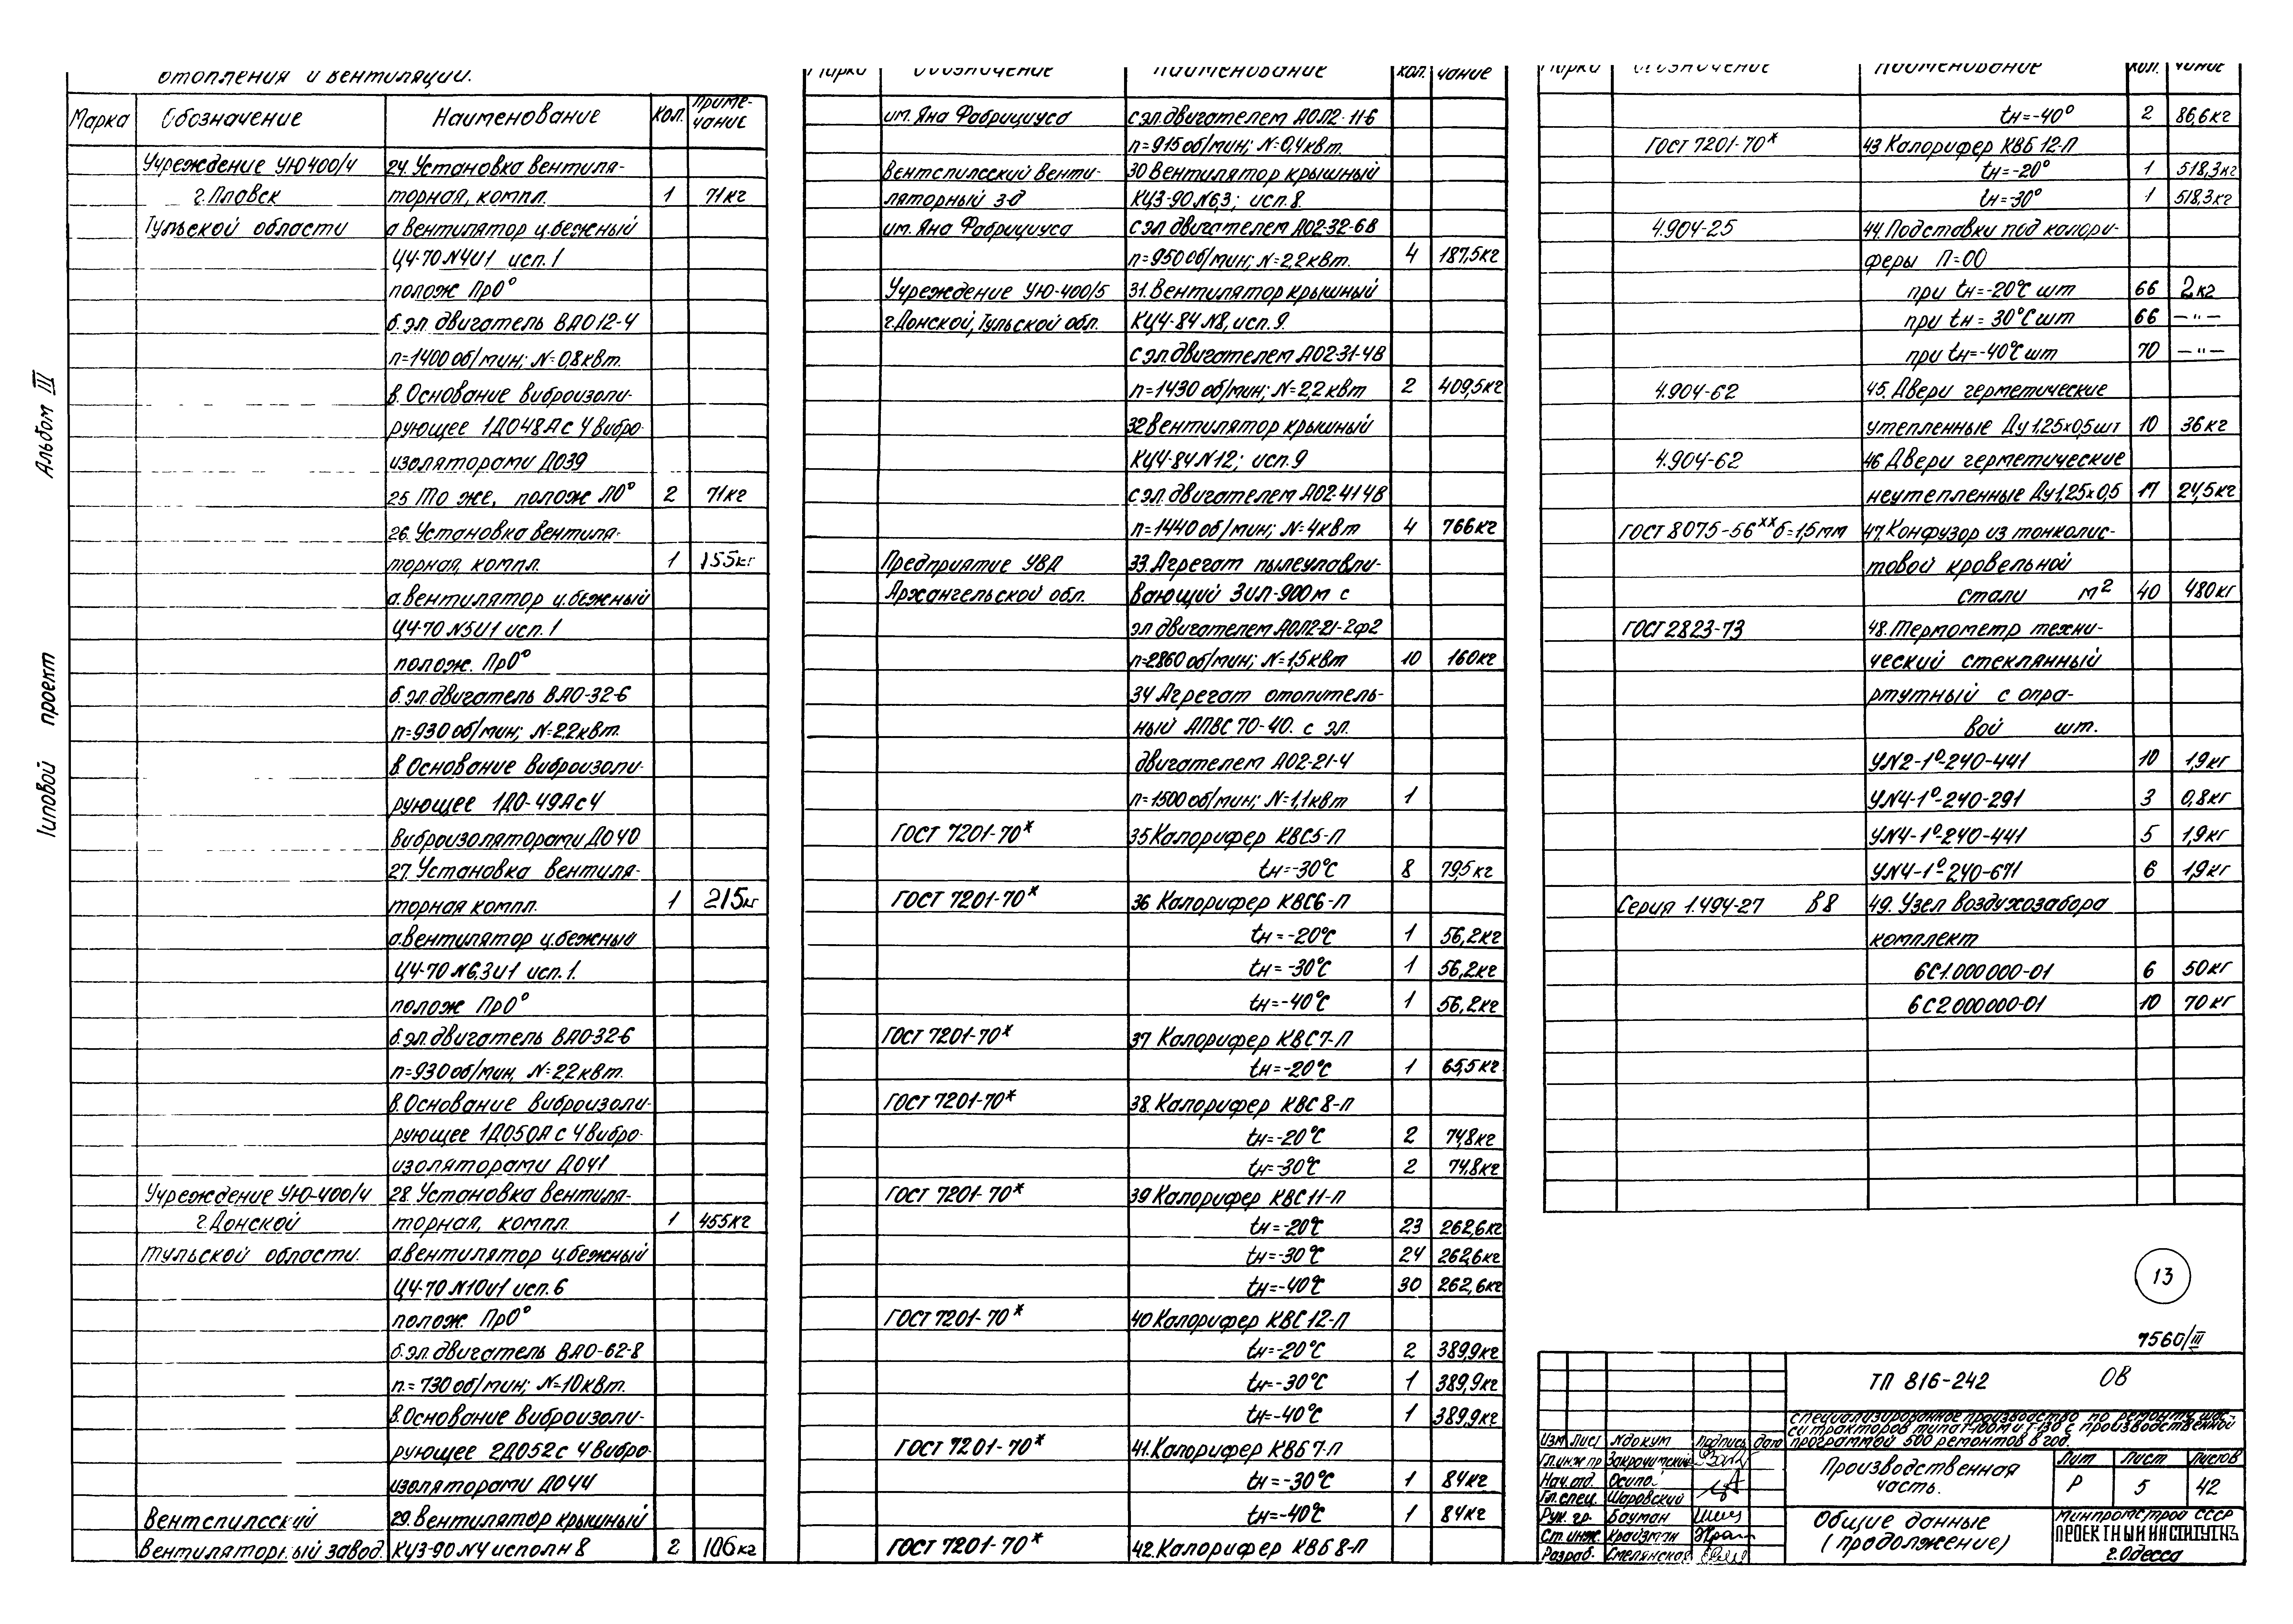 отопления и вентиляции.
Марка Обозначение Наименование Кол. Приме-
чание
Учреждение УЮ400/4 24. Установка вентиля-
г. Плавск торная, компл. 1 71кг
Тульской области а вентилятор ц.бежный
Ц4-70 N4И1 исп. 1
полож Пр0°
б. эл. двигатель ВАО 12-4
n=1400 об/мин; N=0,8 квт.
в. Основание виброизоли-
рующее 1Д048А с 4 вибро-
изоляторами Д039
25 То же, полож Л0° 2 71кг
26. Установка вентиля-
торная, компл. 1 155кг
а. вентилятор ц.бежный
Ц4-70 N5И1 исп. 1
полож. Пр0°
б. эл. двигатель ВАО-32-6
n=930 об/мин; N=2.2 квт.
в. Основание виброизоли-
рующее 1ДО-49А с 4
виброизоляторами Д040
27. Установка вентиля-
торная компл. 1 215кг
а. вентилятор ц.бежный
Ц4-70 N6,3И1 исп. 1.
полож Пр0°
б. эл. двигатель ВАО-32-6
n=930 об/мин, N=2.2 квт.
в. Основание виброизоли-
рующее 1Д050А с 4 вибро-
изоляторами Д041
Учреждение УЮ-400/4 28. Установка вентиля-
г. Донской торная, компл. 1 455кг
тульской области. а. вентилятор ц.бежный
Ц4-70 N10И1 исп. 6
полож. Пр0°
б. эл. двигатель ВАО-62-8
n.=730 об/мин; N=10 квт.
в. Основание виброизоли-
рующее 2Д052 с 4 вибро-
изоляторами Д044
Вентспилсский 29. Вентилятор крышный
вентиляторный завод. КЦ3-90 N4 исполн 8 2 106кг
Марка Обозначение Наименование кол. чание
им. Яна Фабрициуса с эл. двигателем АОЛ2-11-6
n=915 об/мин; N=0,4 квт.
Вентспилсский венти- 30 Вентилятор крышный
ляторный з-д КЦ3-90 N6,3; исп. 8.
им. Яна Фабрициуса с эл. двигателем АО2-32-6В
n=950 об/мин; N=2,2 квт. 4 187,5кг
Учреждение УЮ-400/5 31. Вентилятор крышный
г. Донской, Тульской обл. КЦ4-84 N8, исп. 9.
с эл. двигателем АО2-31-4В
n=1430 об/мин; N=2,2 квт 2 409,5кг
32 вентилятор крышный
КЦ4-84 N12; исп. 9
с эл. двигателем АО2-41 4В
n=1440 об/мин; N=4 квт 4 766кг
Предприятие УВД 33. Агрегат пылеулавли-
Архангельской обл. вающий ЗИЛ-900м с
эл двигателем АОЛ2-21-2ф2
n=2860 об/мин; N=1,5 квт 10 160кг
34 Агрегат отопитель-
ный АПВС 70-40. с эл.
двигателем АО2-21-4
n=1500 об/мин; N=1,1 квт 1
ГОСТ 7201-70* 35 Калорифер КВС5-П
tн=-30°С 8 79,5кг
ГОСТ 7201-70* 36 Калорифер КВС6-П
tн=-20°С 1 56,2кг
tн=-30°С 1 56,2кг
tн=-40°С 1 56,2кг
ГОСТ 7201-70* 37 Калорифер КВС7-П
tн=-20°С 1 65,5кг
ГОСТ 7201-70* 38. Калорифер КВС8-П
tн=-20°С 2 74,8кг
tн=-30°С 2 74,8кг
ГОСТ 7201-70* 39 Калорифер КВС11-П
tн=-20°С 23 262,6кг
tн=-30°С 24 262,6кг
tн=-40°С 30 262,6кг
ГОСТ 7201-70* 40 Калорифер КВС12-П
tн=-20°С 2 389,9кг
tн=-30°С 1 389,9кг
tн=-40°С 1 389,9кг
ГОСТ 7201-70* 41. Калорифер КВБ7-П
tн=-30°С 1 84кг
tн=-40°С 1 84кг
ГОСТ 7201-70* 42. Калорифер КВБ8-П
Марка Обозначение Наименование кол. чание
tн=-40° 2 86,6кг
ГОСТ 7201-70* 43 Калорифер КВБ12-П
tн=-20° 1 518,3кг
tн=-30° 1 518,3кг
4.904-25 44. Подставки под калори-
феры П=00
при tн=-20°С шт 66 2кг
при tн=30°С шт 66 —"—
при tн=-40°С шт 70 —"—
4.904-62 45. Двери герметические
утепленные Ду 1.25х0,5 шт 10 36кг
4.904-62 46 Двери герметические
неутепленные Ду 1,25х0,5 17 24,5кг
ГОСТ 8075-56** б=1,5мм 47. Конфузор из тонколис-
товой кровельной
стали м² 40 480кг
ГОСТ 2823-73 48. Термометр техни-
ческий стеклянный
ртутный с опра-
вой шт.
УN2-1°-240-441 10 1,9кг
УN4-1°-240-291 3 0,8кг
УN4-1°-240-441 5 1,9кг
УN4-1°-240-671 6 1,9кг
Серия 1.494-27 В8 49. Узел воздухозабора
комплект
6С1.000000-01 6 50кг
6С2 000000-01 10 70кг
13
7560/III
ТП 816-242 ОВ
Специализированное производство по ремонту шас-
си тракторов типа Т-100М и Т-130 с производственной
программой 500 ремонтов в год.
Изм Лист Nдокум Подпись дата
Гл.инж пр Закрочимский
Нач. отд. Осипо
Гл. спец. Шаровский
Рук. гр. Бауман
Ст. инж. Крайзман
Разраб. Смелянская
Производственная
часть.
Лит Лист Листов
Р 5 42
Общие данные
(продолжение)
Минпромстрой СССР
ПРОЕКТНЫЙ ИНСТИТУТ N2
г. Одесса
Альбом III
Типовой проект